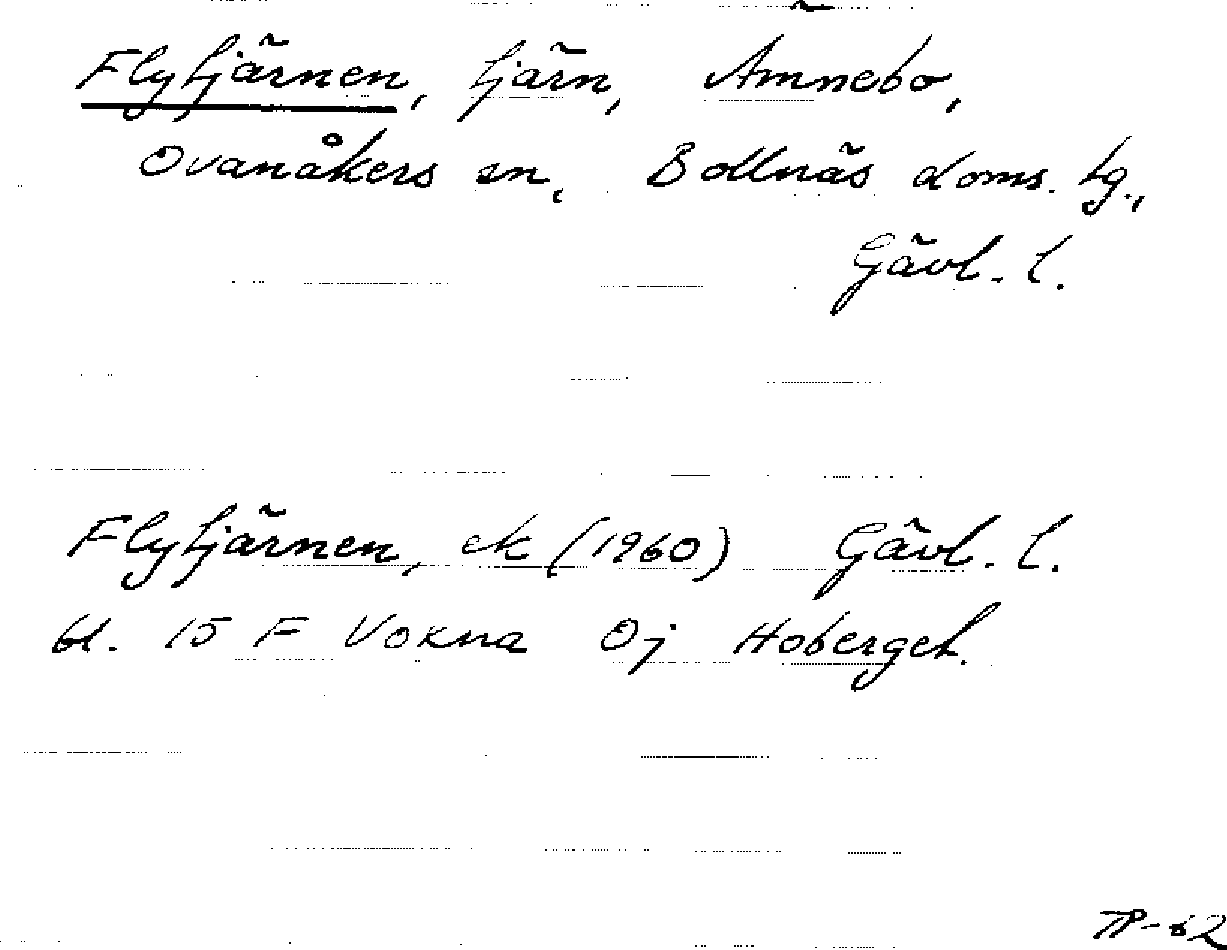 Flytjärnen, tjärn, Ämnebo,
Ovanåkers sn, Bollnäs doms. tg.,
Gävl. l.
Flytjärnen, ek (1960) Gävl. l.
bl. 15 F Voxna 0j Hoberget.
TP-62